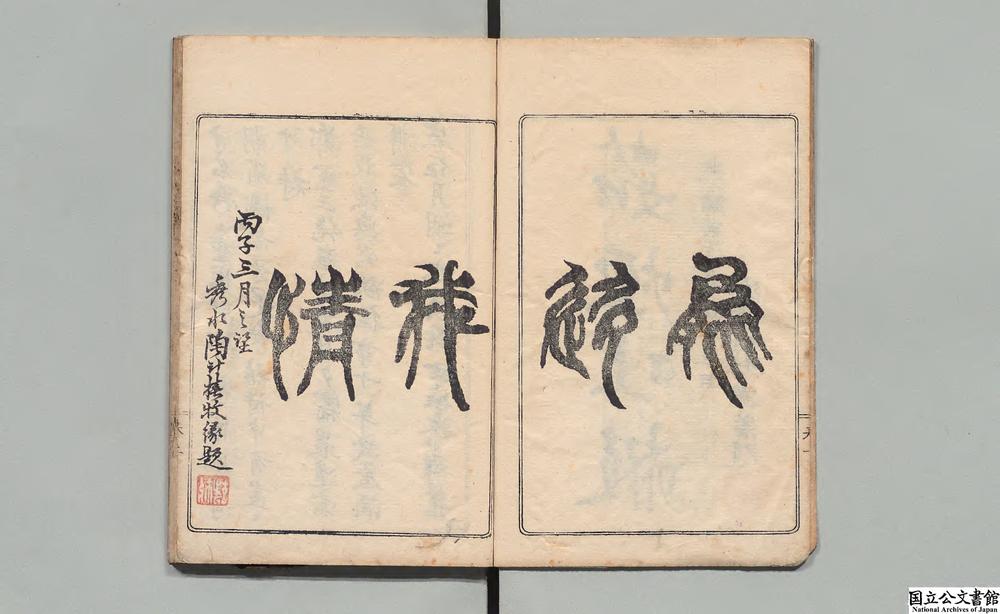 為
迻
我
情
丙子三月之望
秀水陶計椿牧緣題
国立公文書館
National Archives of Japan